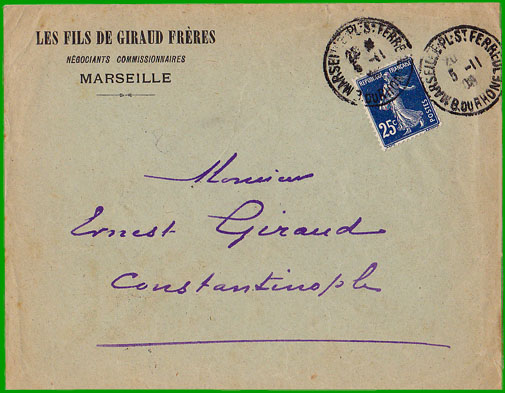 LES FILS DE GIRAUD FRÈRES
NÉGOCIANTS COMMISSIONNAIRES
MARSEILLE
MARSEILLE-PL-ST FERREOL
5 -11
B. DU RHONE
MARSEILLE-PL-ST FERREOL
5 -11
B. DU RHONE
REPUBLIQUE FRANCAISE
25c
POSTES
Monsieur
Ernest Giraud
Constantinople